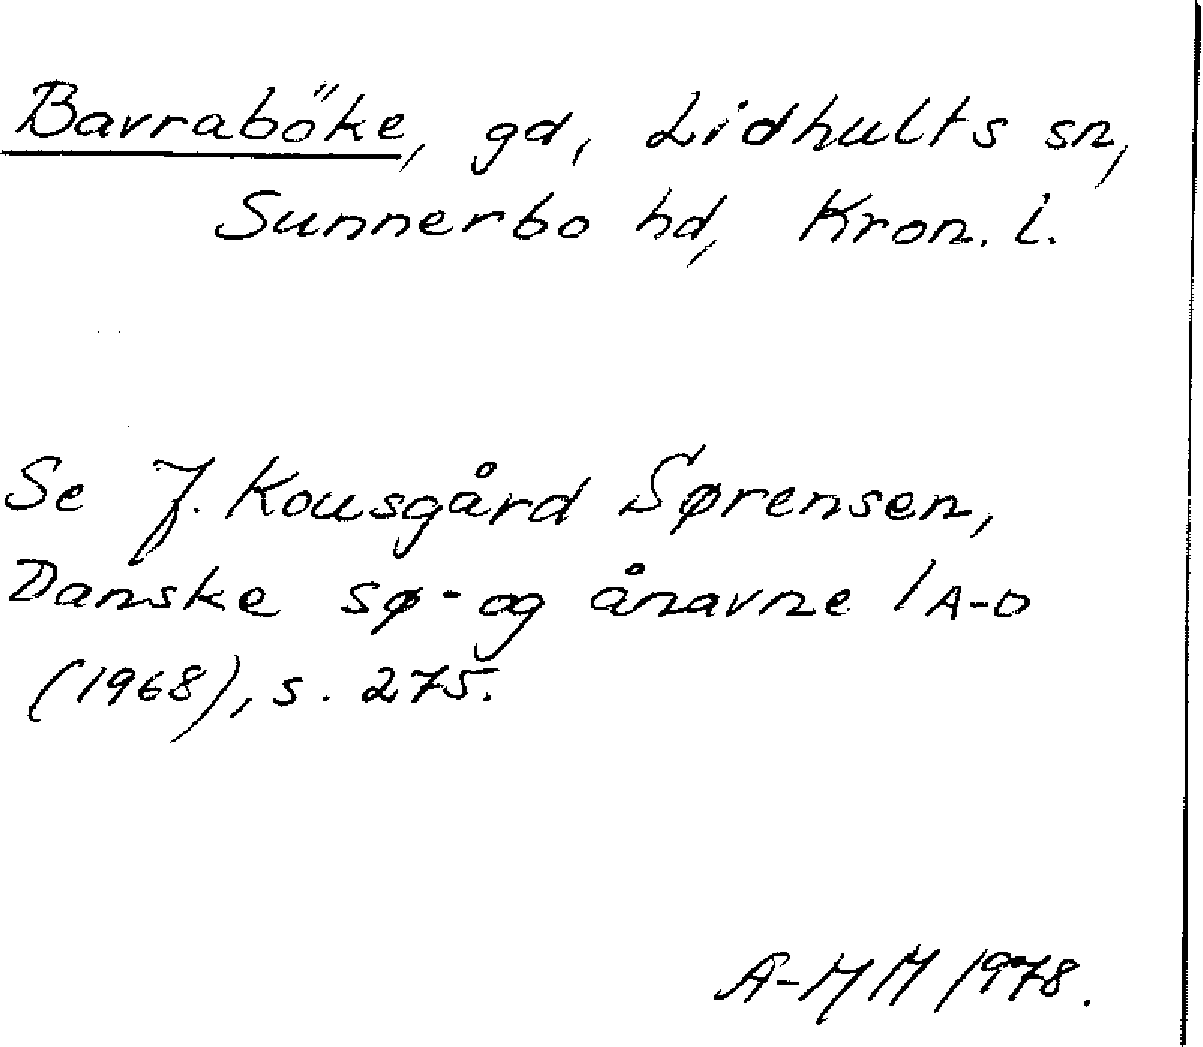 Bavraböke, gd, Lidhults sn,
Sunnerbo hd, Kron. l.
Se J. Kousgård Sørensen,
Danske sø- og ånavne 1 A-D
(1968), s. 275.
A-MM 1978.